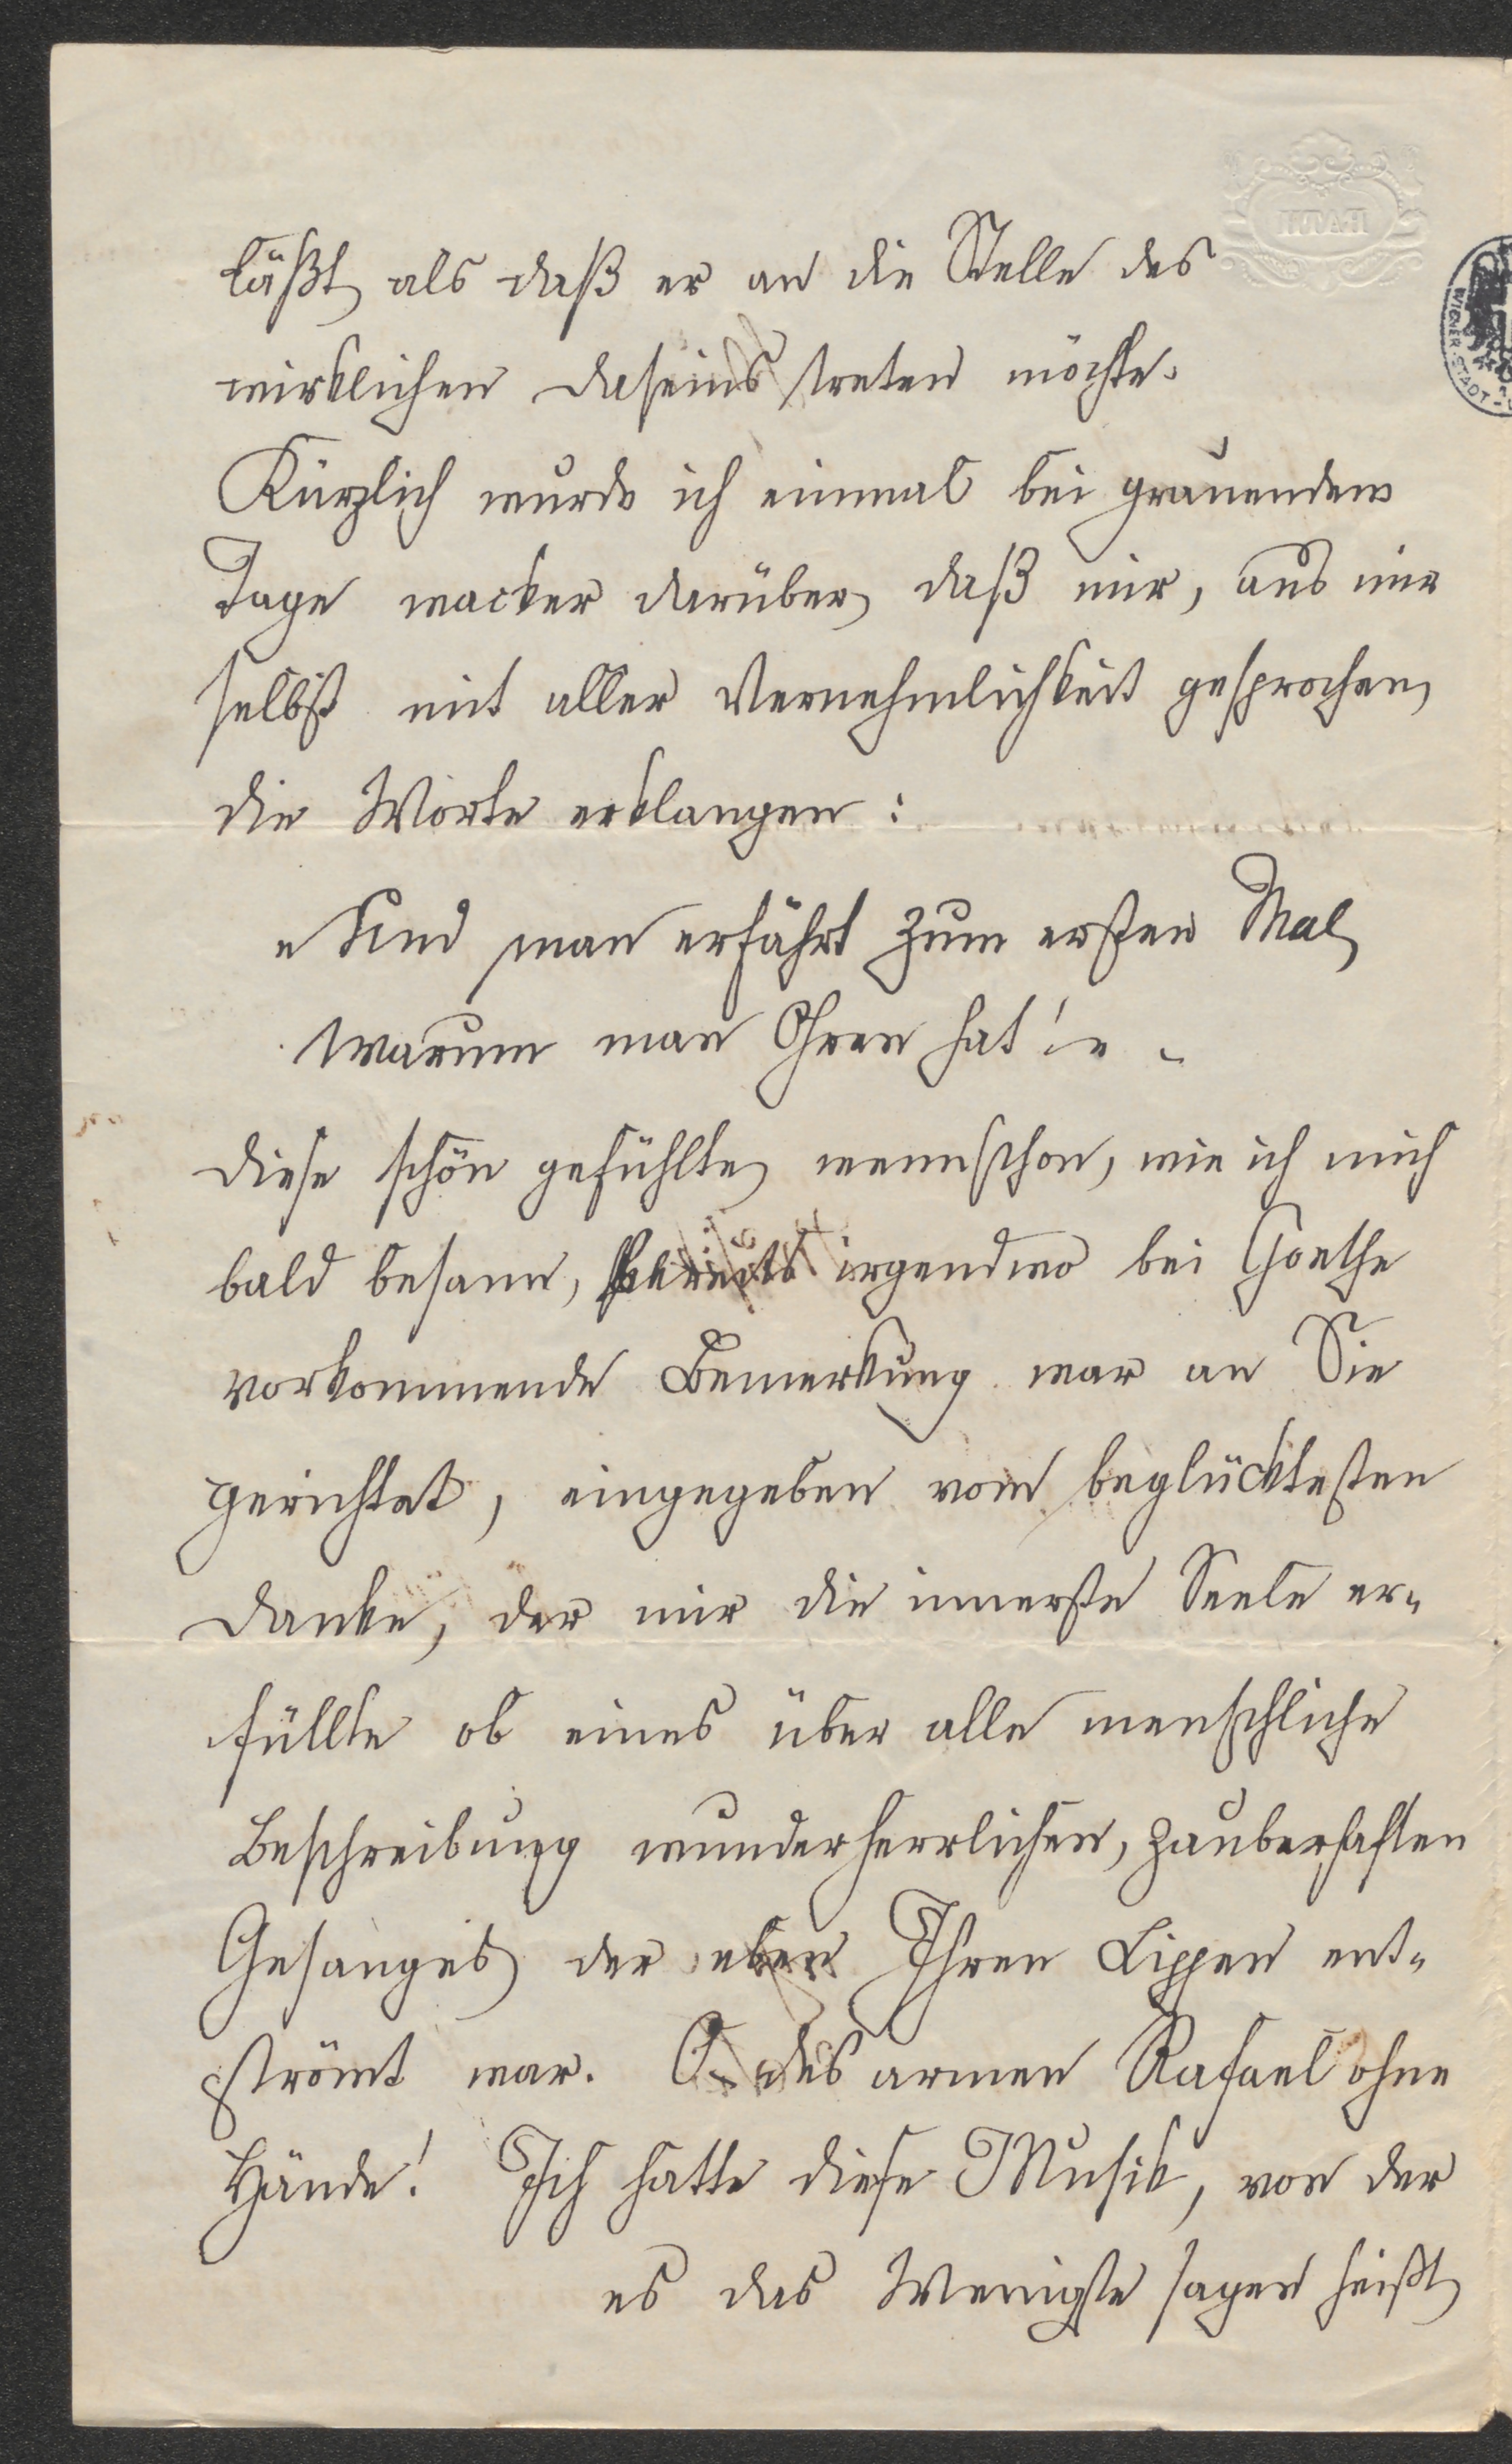 läßt, als daß er an die Stelle des
wirklichen Daseins treten möchte.
Kürzlich wurde ich einmal bei grauendem
Tage wacker darüber, daß mir, aus mir
selbst mit aller Vernehmlichkeit gesprochen,
die Worte erklangen:
„Und man erfährt zum ersten Mal,
warum man Ohren hat!"
Diese schön gefühlte, wennschon, wie ich mich
bald besann, bereits irgendwo bei Goethe
vorkommende Bemerkung war an Sie
gerichtet, eingegeben vom beglücktesten
Danke, der mir die innerste Seele er„
füllte ob eines über alle menschliche
Beschreibung wunderherrlichen, zauberhaften
Gesanges, der eben Ihren Lippen ent„
strömt war. O des armen Rafael ohne
Hände! Ich hatte diese Musik, von der
es das Wenigste sagen heißt,
BATH
WIENER-STADT-